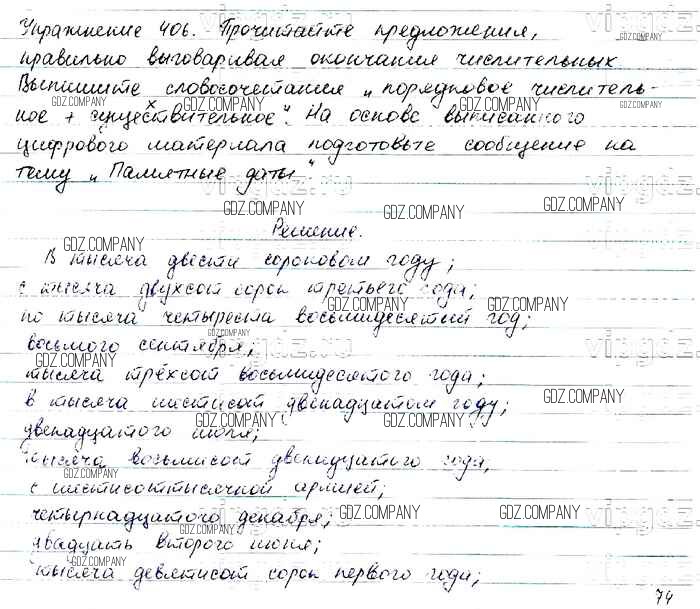 Упражнение 406. Прочитайте предложения,
правильно выговаривая окончания числительных
Выпишите словосочетания „порядковое числитель-
ное + существительное". На основе выписанного
цифрового материала подготовьте сообщение на
тему „Памятные даты"
Решение.
В тысяча двести сороковом году;
с тысяча двухсот сорок третьего года;
по тысяча четыреста восьмидесятый год;
восьмого сентября;
тысяча трёхсот восьмидесятого года;
в тысяча шестисот двенадцатом году;
двенадцатого июля;
тысяча восьмисот двенадцатого года;
с шестисоттысячной армией;
четырнадцатого декабря;
двадцать второго июня;
тысяча девятисот сорок первого года;
74
GDZ.COMPANY
vipgdz.ru